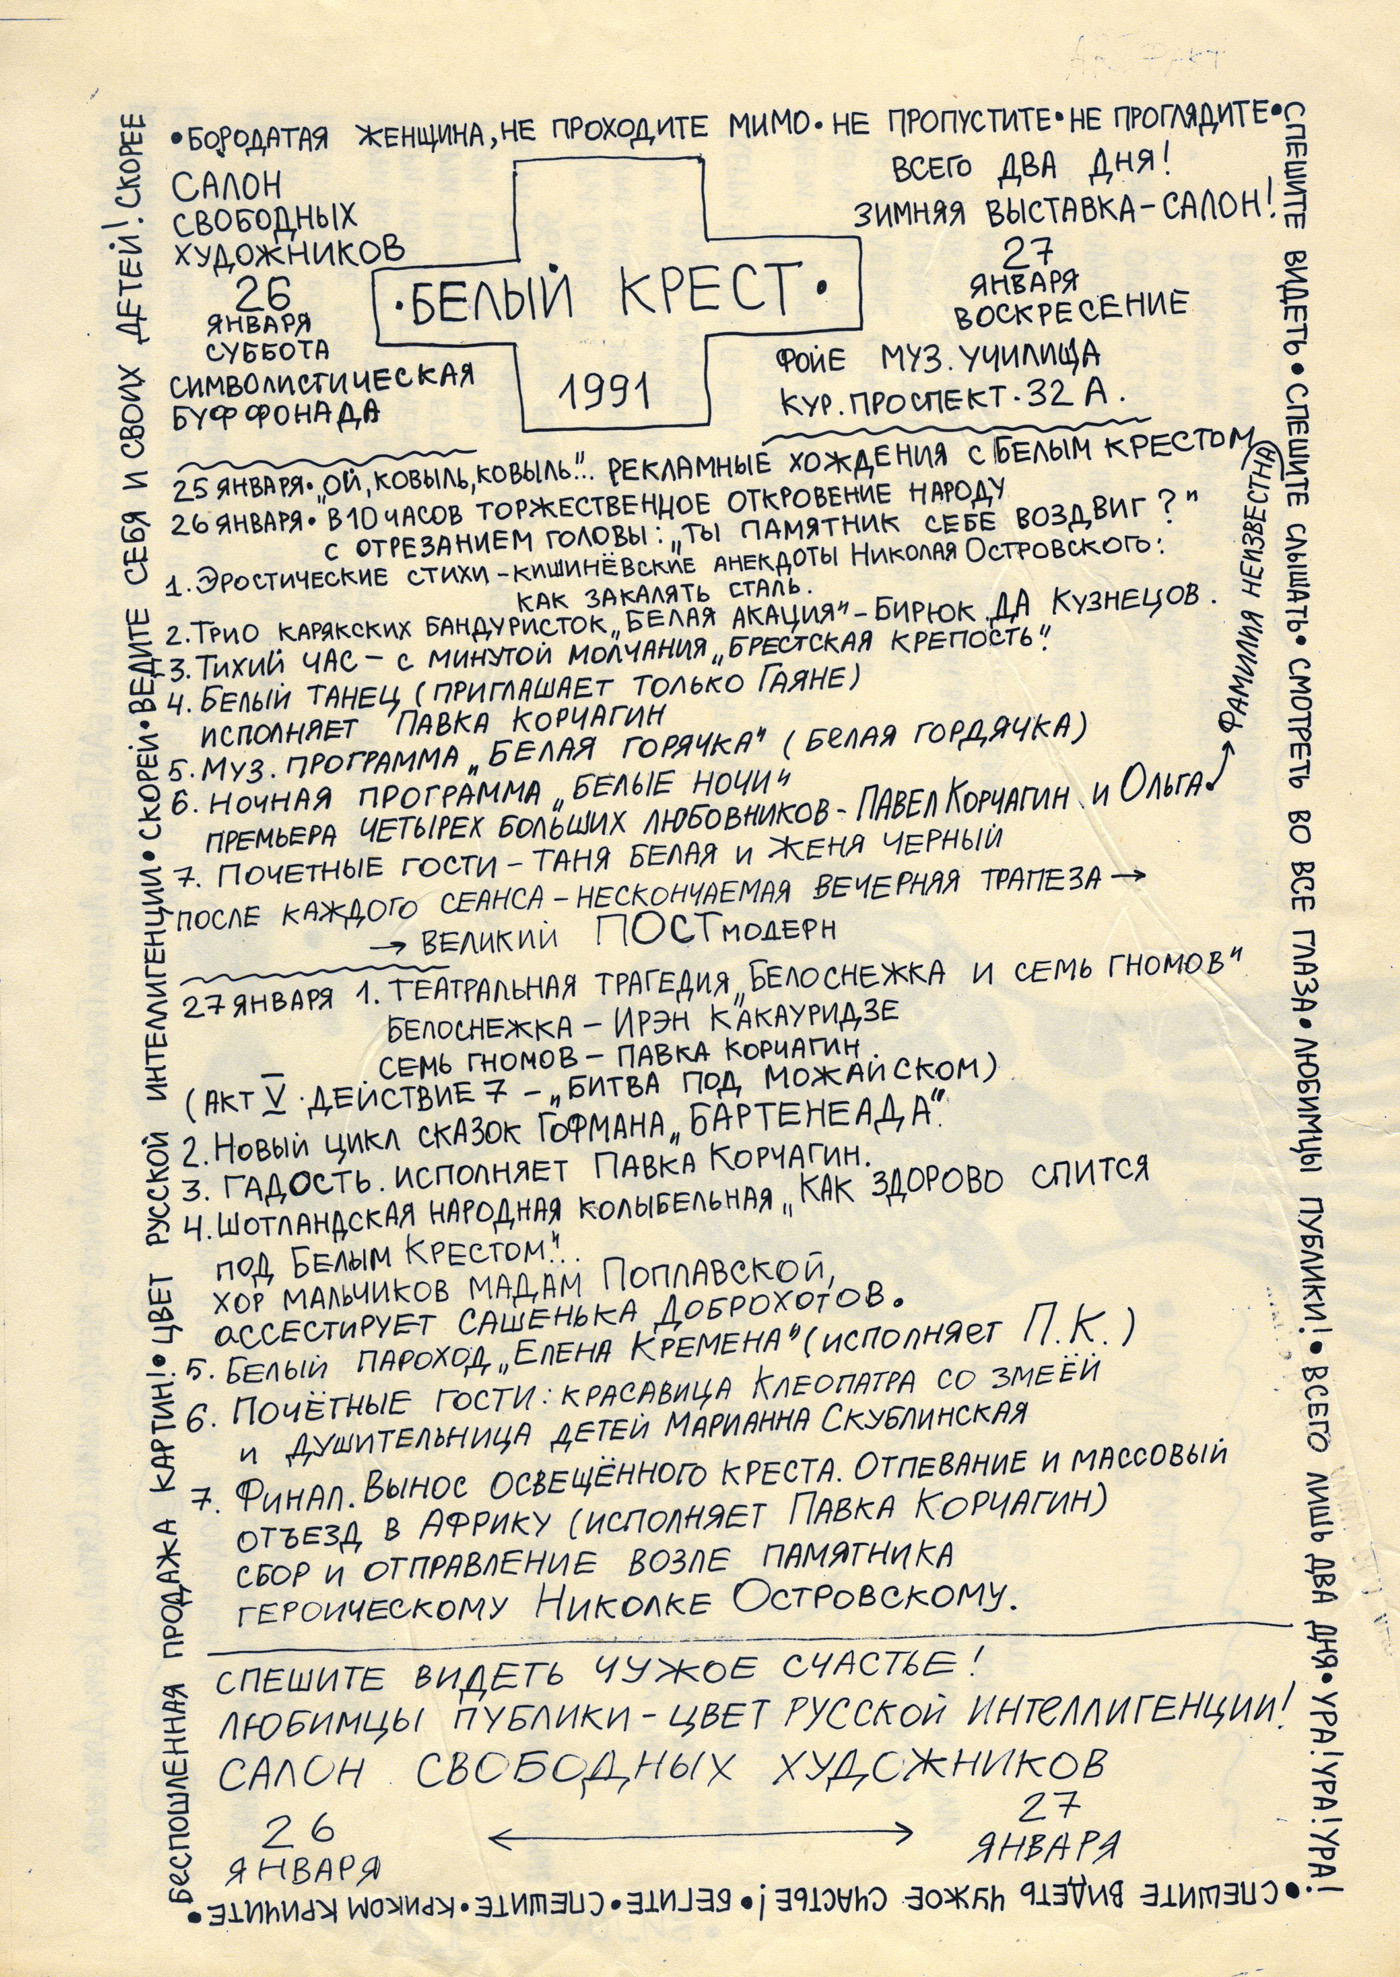 •БОРОДАТАЯ ЖЕНЩИНА, НЕ ПРОХОДИТЕ МИМО•НЕ ПРОПУСТИТЕ•НЕ ПРОГЛЯДИТЕ•
СПЕШИТЕ ВИДЕТЬ•СПЕШИТЕ СЛЫШАТЬ•СМОТРЕТЬ ВО ВСЕ ГЛАЗА•ЛЮБИМЦЫ ПУБЛИКИ!•ВСЕГО ЛИШЬ ДВА ДНЯ•УРА!УРА!УРА!
•СПЕШИТЕ ВИДЕТЬ ЧУЖОЕ СЧАСТЬЕ!•БЕГИТЕ•СПЕШИТЕ•КРИКОМ КРИЧИТЕ•
БЕСПОШЛЕННАЯ ПРОДАЖА КАРТИН!•ЦВЕТ РУССКОЙ ИНТЕЛЛИГЕНЦИИ•СКОРЕЙ•ВЕДИТЕ СЕБЯ И СВОИХ ДЕТЕЙ!.СКОРЕЕ
САЛОН
СВОБОДНЫХ
ХУДОЖНИКОВ
26
ЯНВАРЯ
СУББОТА
СИМВОЛИСТИЧЕСКАЯ
БУФФОНАДА
•БЕЛЫЙ КРЕСТ•
1991
ВСЕГО ДВА ДНЯ!
ЗИМНЯЯ ВЫСТАВКА-САЛОН!
27
ЯНВАРЯ
ВОСКРЕСЕНИЕ
ФОЙЕ МУЗ. УЧИЛИЩА
КУР. ПРОСПЕКТ. 32 А.
25 ЯНВАРЯ•„ОЙ, КОВЫЛЬ, КОВЫЛЬ"... РЕКЛАМНЫЕ ХОЖДЕНИЯ С БЕЛЫМ КРЕСТОМ
26 ЯНВАРЯ• В 10 ЧАСОВ ТОРЖЕСТВЕННОЕ ОТКРОВЕНИЕ НАРОДУ
С ОТРЕЗАНИЕМ ГОЛОВЫ: „ТЫ ПАМЯТНИК СЕБЕ ВОЗДВИГ?"
1. ЭРОСТИЧЕСКИЕ СТИХИ-КИШИНЁВСКИЕ АНЕКДОТЫ НИКОЛАЯ ОСТРОВСКОГО:
КАК ЗАКАЛЯТЬ СТАЛЬ.
2. ТРИО КАРЯКСКИХ БАНДУРИСТОК „БЕЛАЯ АКАЦИЯ"-БИРЮК ДА КУЗНЕЦОВ.
3. ТИХИЙ ЧАС - С МИНУТОЙ МОЛЧАНИЯ „БРЕСТСКАЯ КРЕПОСТЬ".
4. БЕЛЫЙ ТАНЕЦ (ПРИГЛАШАЕТ ТОЛЬКО ГАЯНЕ)
ИСПОЛНЯЕТ ПАВКА КОРЧАГИН
5. МУЗ. ПРОГРАММА „БЕЛАЯ ГОРЯЧКА" (БЕЛАЯ ГОРДЯЧКА)
6. НОЧНАЯ ПРОГРАММА „БЕЛЫЕ НОЧИ"
ПРЕМЬЕРА ЧЕТЫРЕХ БОЛЬШИХ ЛЮБОВНИКОВ-ПАВЕЛ КОРЧАГИН И ОЛЬГА
→ФАМИЛИЯ НЕИЗВЕСТНА
7. ПОЧЕТНЫЕ ГОСТИ - ТАНЯ БЕЛАЯ И ЖЕНЯ ЧЕРНЫЙ
ПОСЛЕ КАЖДОГО СЕАНСА-НЕСКОНЧАЕМАЯ ВЕЧЕРНЯЯ ТРАПЕЗА→
→ВЕЛИКИЙ ПОСТмодерн
27 ЯНВАРЯ 1. ТЕАТРАЛЬНАЯ ТРАГЕДИЯ „БЕЛОСНЕЖКА И СЕМЬ ГНОМОВ"
БЕЛОСНЕЖКА - ИРЭН КАКАУРИДЗЕ
СЕМЬ ГНОМОВ - ПАВКА КОРЧАГИН.
(АКТ V. ДЕЙСТВИЕ 7 - „БИТВА ПОД МОЖАЙСКОМ)
2. НОВЫЙ ЦИКЛ СКАЗОК ГОФМАНА „БАРТЕНЕАДА".
3. ГАДОСТЬ. ИСПОЛНЯЕТ ПАВКА КОРЧАГИН.
4. ШОТЛАНДСКАЯ НАРОДНАЯ КОЛЫБЕЛЬНАЯ „КАК ЗДОРОВО СПИТСЯ
ПОД БЕЛЫМ КРЕСТОМ"...
ХОР МАЛЬЧИКОВ МАДАМ ПОПЛАВСКОЙ,
АССЕСТИРУЕТ САШЕНЬКА ДОБРОХОТОВ.
5. БЕЛЫЙ ПАРОХОД „ЕЛЕНА КРЕМЕНА" (ИСПОЛНЯЕТ П.К.)
6. ПОЧЁТНЫЕ ГОСТИ: КРАСАВИЦА КЛЕОПАТРА СО ЗМЕЁЙ
И ДУШИТЕЛЬНИЦА ДЕТЕЙ МАРИАННА СКУБЛИНСКАЯ
7. ФИНАЛ. ВЫНОС ОСВЕЩЁННОГО КРЕСТА. ОТПЕВАНИЕ И МАССОВЫЙ
ОТЪЕЗД В АФРИКУ (ИСПОЛНЯЕТ ПАВКА КОРЧАГИН)
СБОР И ОТПРАВЛЕНИЕ ВОЗЛЕ ПАМЯТНИКА
ГЕРОИЧЕСКОМУ НИКОЛКЕ ОСТРОВСКОМУ.
СПЕШИТЕ ВИДЕТЬ ЧУЖОЕ СЧАСТЬЕ!
ЛЮБИМЦЫ ПУБЛИКИ - ЦВЕТ РУССКОЙ ИНТЕЛЛИГЕНЦИИ!
САЛОН СВОБОДНЫХ ХУДОЖНИКОВ
26
ЯНВАРЯ
27
ЯНВАРЯ